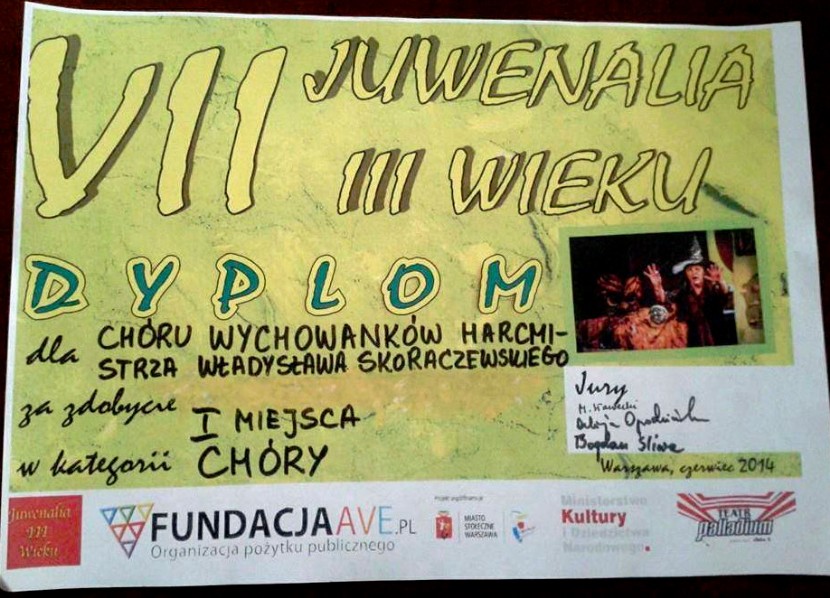 VII JUWENALIA
III WIEKU
DYPLOM
dla CHÓRU WYCHOWANKÓW HARCMI-
STRZA WŁADYSŁAWA SKORACZEWSKIEGO
za zdobycie I MIEJSCA
w kategorii CHÓRY
Jury
Bogdan Śliwa
Warszawa, czerwiec 2014
Juwenalia
III
Wieku
FUNDACJAAVE.PL
Organizacja pożytku publicznego
MIASTO
STOŁECZNE
WARSZAWA
Ministerstwo
Kultury
i Dziedzictwa
Narodowego.
TEATR
palladium